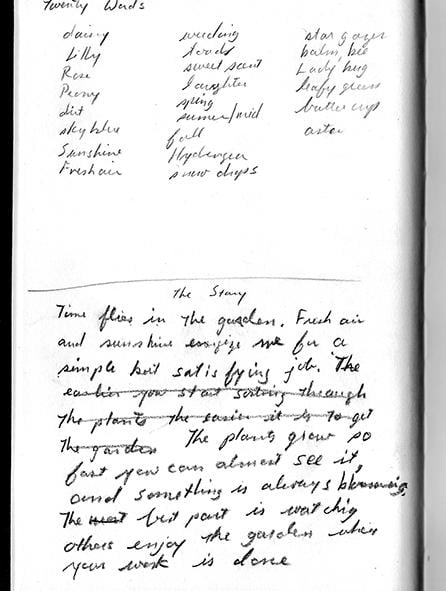 Twenty Words
daisy
Lilly
Rose
Peony
dirt
sky blue
Sunshine
Fresh air
weeding
toads
sweet scent
laughter
spring
sumer/mid
fall
Hydengea
snow drops
star gazer
balm, bee
Lady bug
leafy green
butter cups
aster
The Story
Time flies in the garden. Fresh air
and sunshine me for a
simple but satisfying job. The
easier you start sorting through
the plants the easier it is to get
the garden The plants grow so
fast you can almost see it,
and something is always blooming.
The best part is watchig
others enjoy the garden when
your work is done